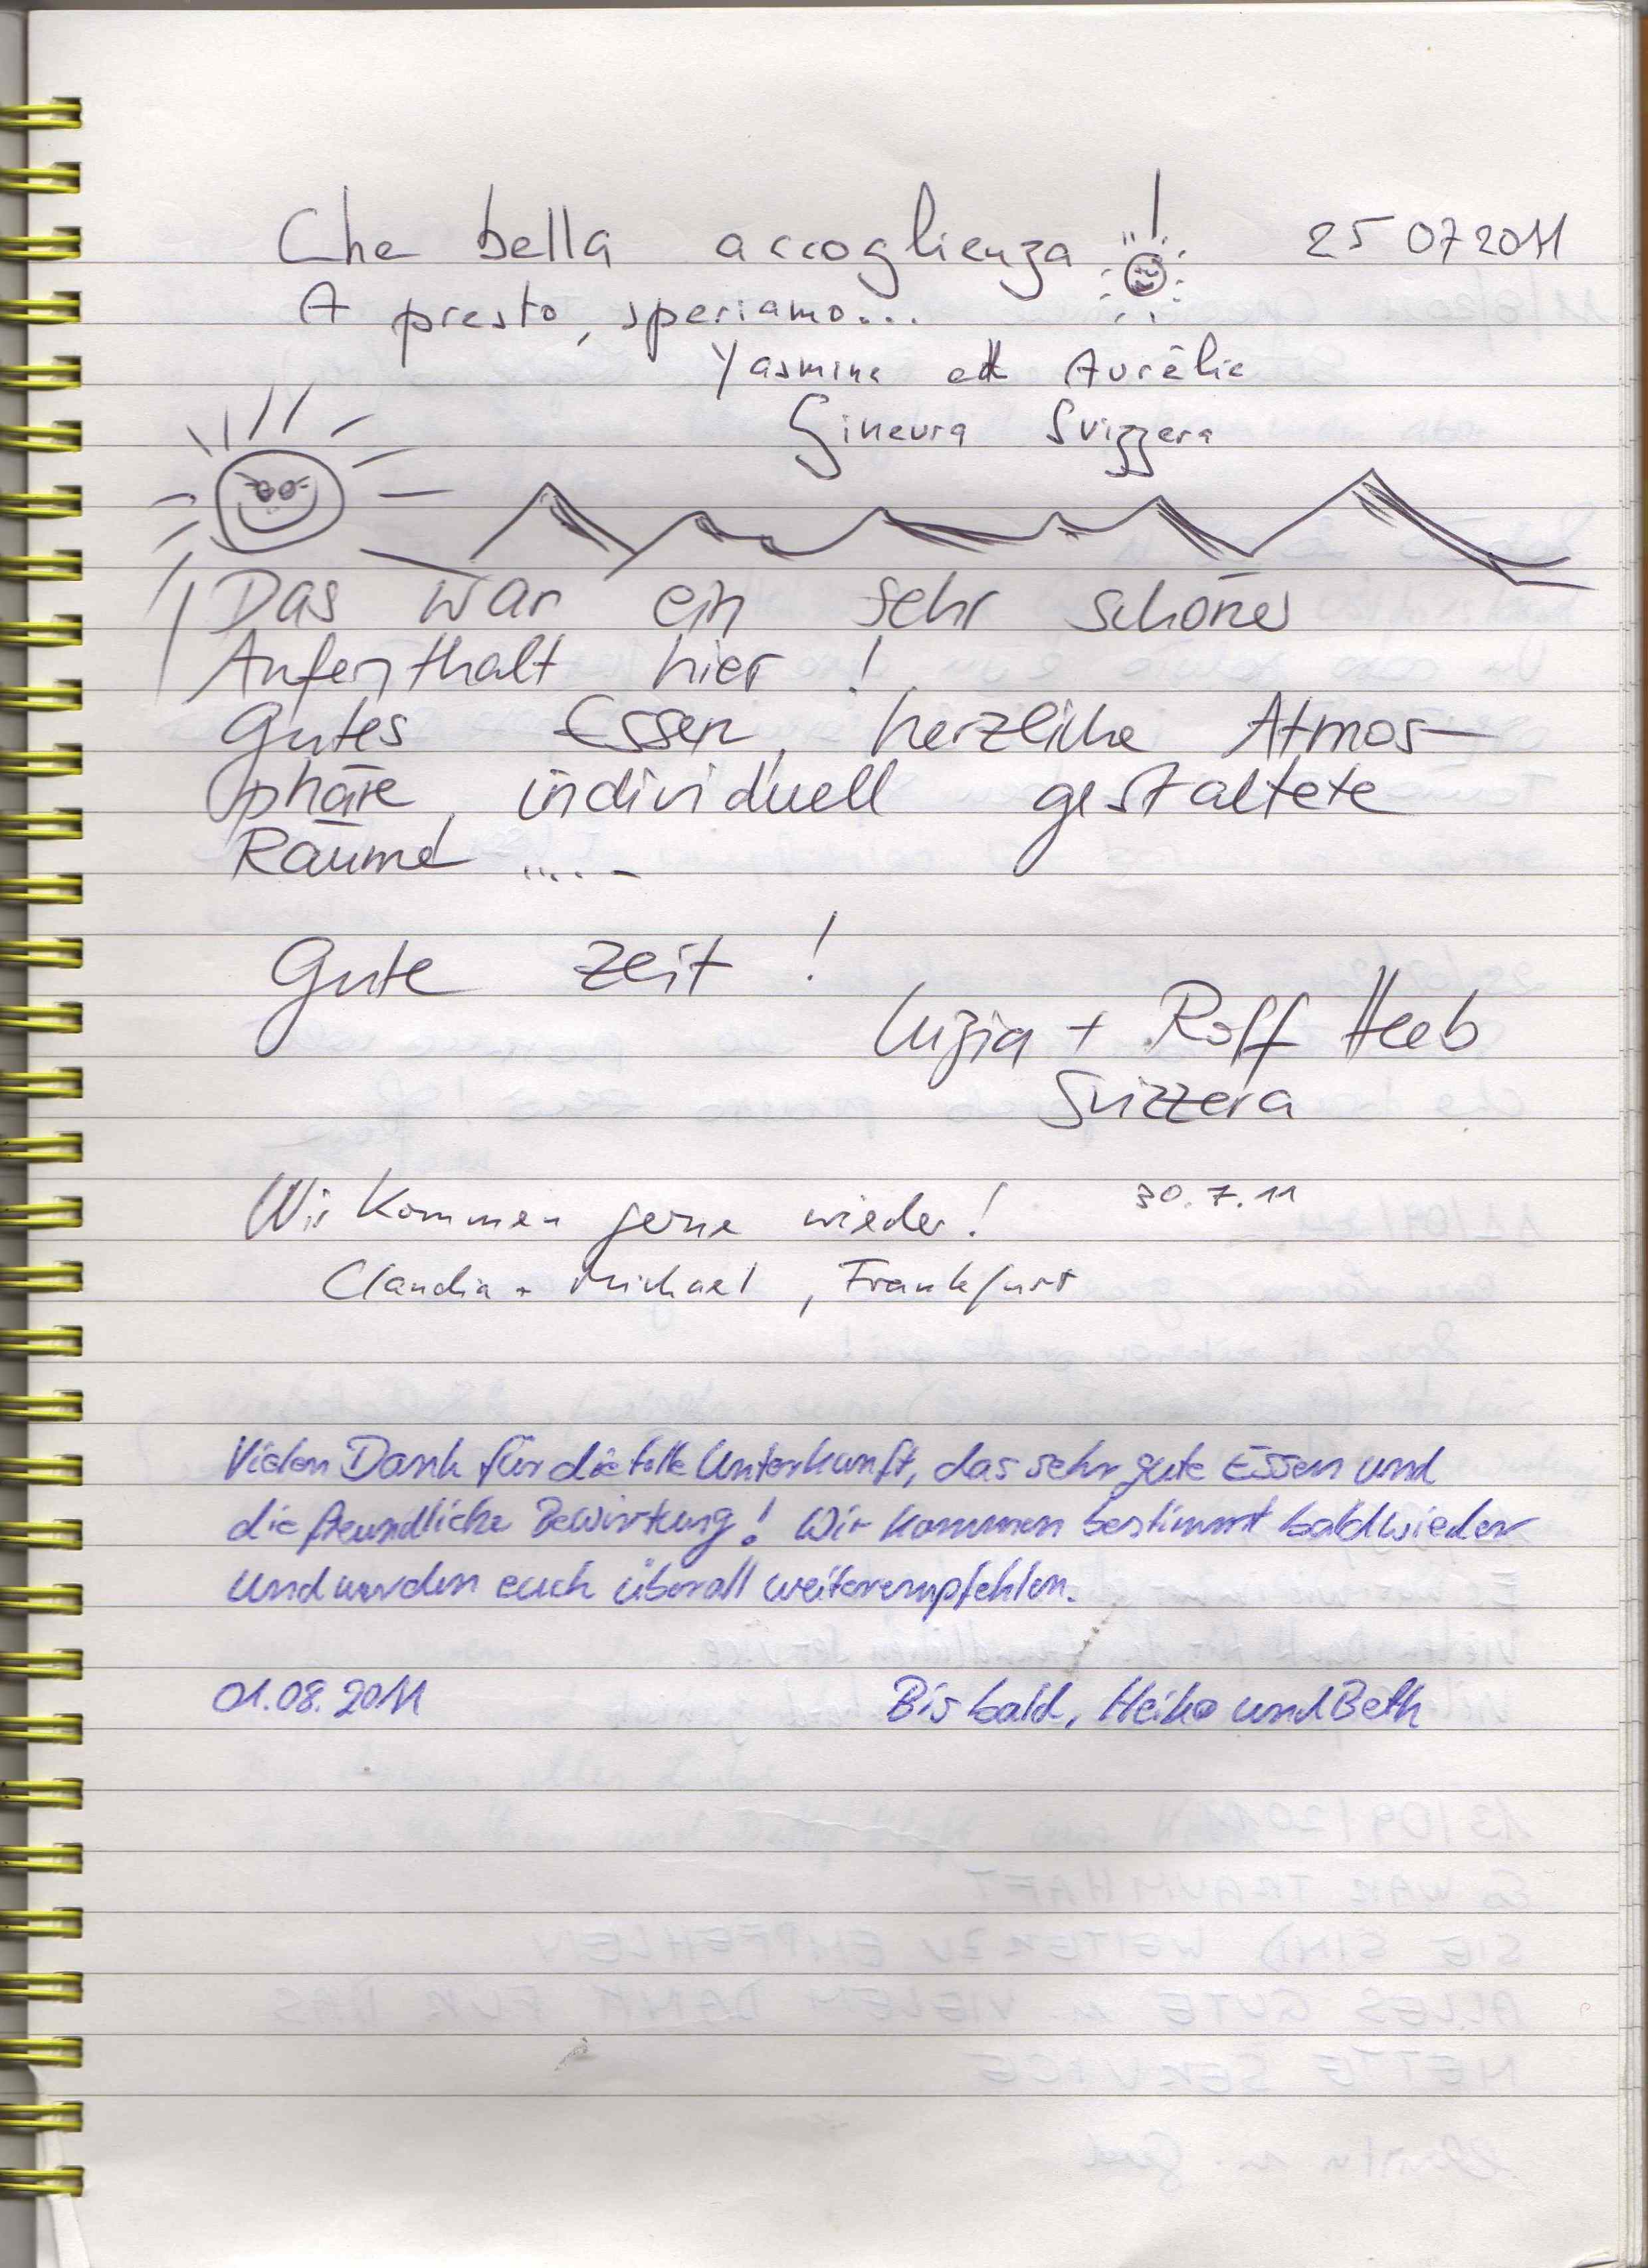 Che bella accoglienza ! 25 07 2011
A presto, speriamo...
Yasmine et Aurélie
Ginevra Svizzera
Das war ein sehr schöner
Aufenthalt hier !
Gutes Essen, herzliche Atmos-
phäre, individuell gestaltete
Räume .....
Gute Zeit !
Luzia + Rolf Heeb
Svizzera
Wir kommen gerne wieder! 30.7.11
Claudia + Michael, Frankfurt
Vielen Dank für die tolle Unterkunft, das sehr gute Essen und
die freundliche Bewirtung! Wir kommen bestimmt bald wieder
und werden euch überall weiterempfehlen.
01.08.2011 Bis bald, Heiko und Beth